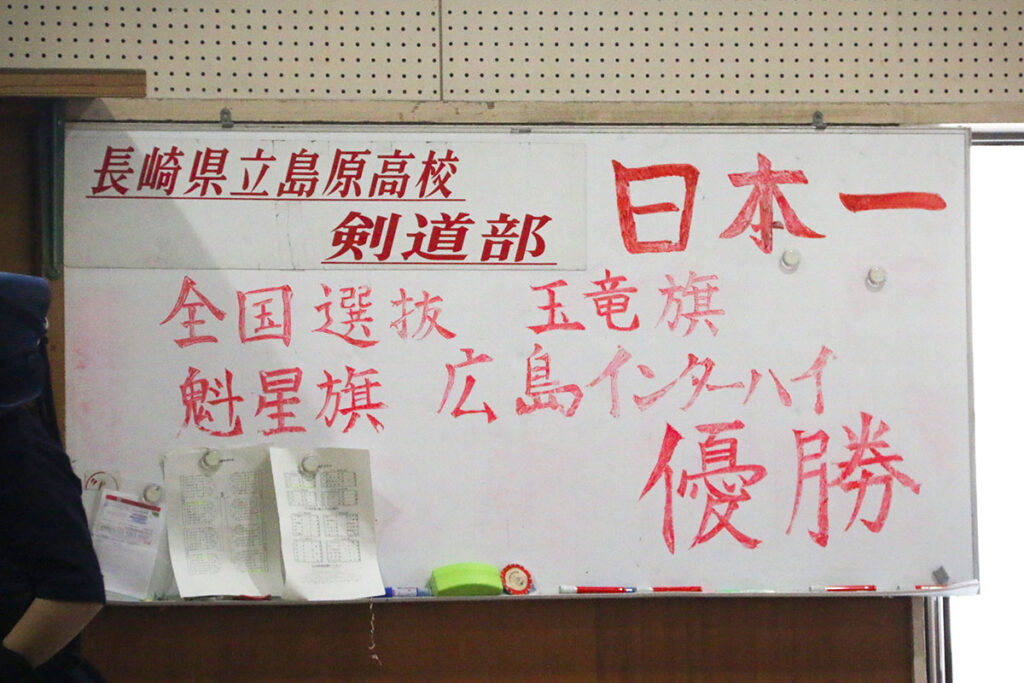 長崎県立島原高校
剣道部
日本一
全国選抜 玉竜旗
魁星旗 広島インターハイ
優勝